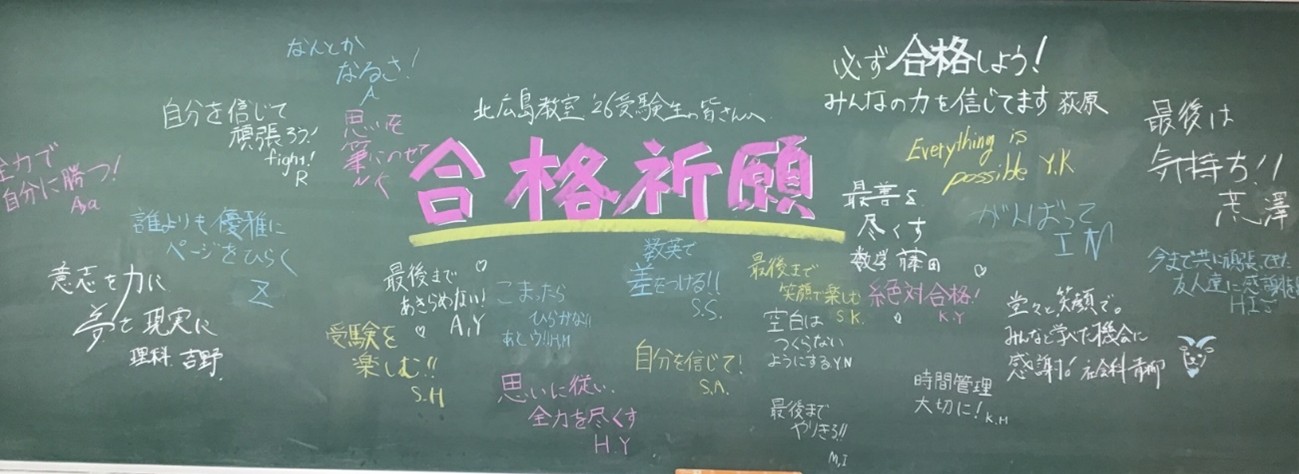 北広島教室 '26受験生の皆さんへ
合格祈願
なんとか
なるさ!
A
自分を信じて
頑張ろう!
fight!
R
思いを
筆にのせて
全力で
自分に勝つ!
誰よりも優雅に
ページをひらく
Z
意志を力に
夢を現実に
理科 吉野
最後まで
あきらめない!
A.Y
受験を
楽しむ!!
S.H
こまったら
ひらがな!!
H.M
思いに従い
全力を尽くす
H.Y
数英で
差をつける!!
S.S.
自分を信じて!
S.A.
最後まで
笑顔で楽しむ
S.K.
空白は
つくらない
ようにする Y.N
最後まで
やりきる!!
M.I
必ず合格しよう!
みんなの力を信じてます 荻原
Everything is
possible Y.K
最善を
尽くす
数学 藤田
絶対合格!
K.Y
がんばって
I N
最後は
気持ち!!
荒澤
今まで共に頑張ってきた
友人達に感謝
H.I
堂々と笑顔で。
みんなと学べた機会に
感謝を! 社会科 青柳
時間管理
大切に! K.M